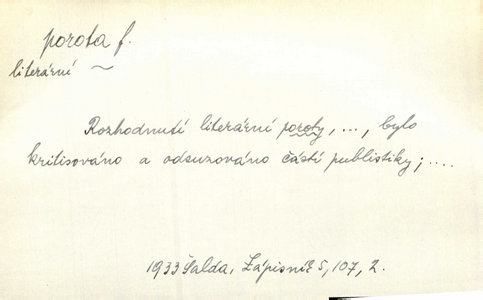 porota f.
literární ~
Rozhodnutí literární poroty, ..., bylo
kritisováno a odsuzováno částí publistiky; ....
1933 Šalda, Zápisník 5, 107, 2.